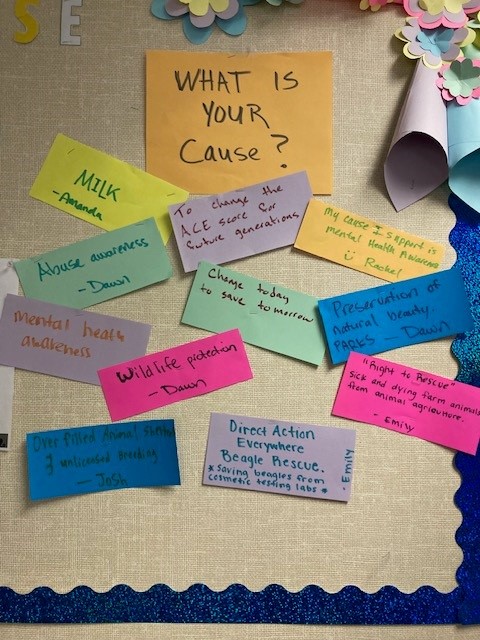 SE
WHAT IS
YOUR
Cause?
MILK
-Amanda
To change the
ACE score for
future generations
My cause I support is
mental Health Awareness
Rachel
Abuse awareness
- Dawn
Change today
to save tomorrow
Preservation of
natural beauty.
PARKS - Dawn
mental health
awareness
Wildlife protection
- Dawn
"Right to Rescue"
sick and dying farm animals
from animal agriculture.
- Emily
Over filled Animal Shelters
& unlicensed Breeding
- Josh
Direct Action
Everywhere
Beagle Rescue.
* Saving beagles from
cosmetic testing labs *
- Emily